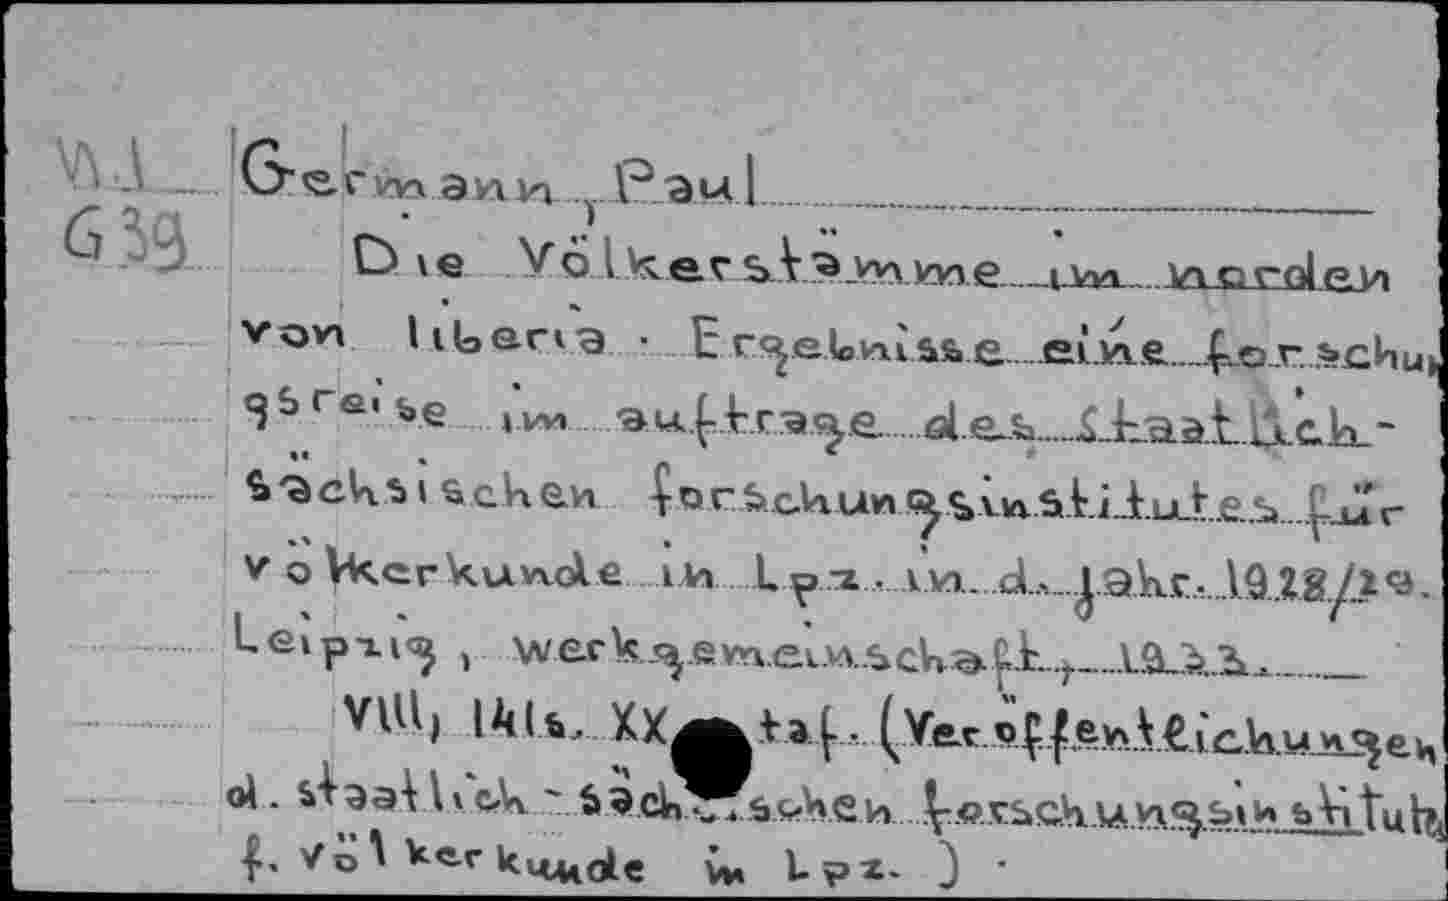 VI.1 Germann, Paul
G39 Die Völkerstämme im norden
von liberia. Ergebnisse eine forschun
gsreise im auftrage des Staatlich-
sächsischen forschungsinstitutes für
völkerkunde in Lpz. in d. Jahr. 1928/29.
Leipzig, werkgemeinschaft, 1933.
VIII, 141s. XX taf. (Veröffentlichungen
d. staatlich-sächsischen forschungsinstitut
f. völkerkunde in Lpz.).